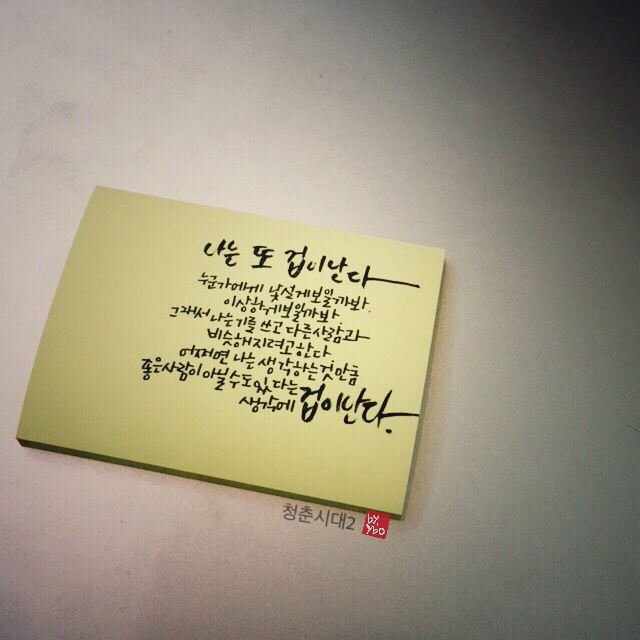 나는 또 겁이난다
누군가에게 낯설게보일까봐.
이상하게보일까봐
그래서 나는기를 쓰고 다른사람과
비슷해지려고한다
어쩌면 나는 생각하는것만큼
좋은사람이 아닐 수도 있다는
생각에 겁이난다.
청춘시대2
by
ybo